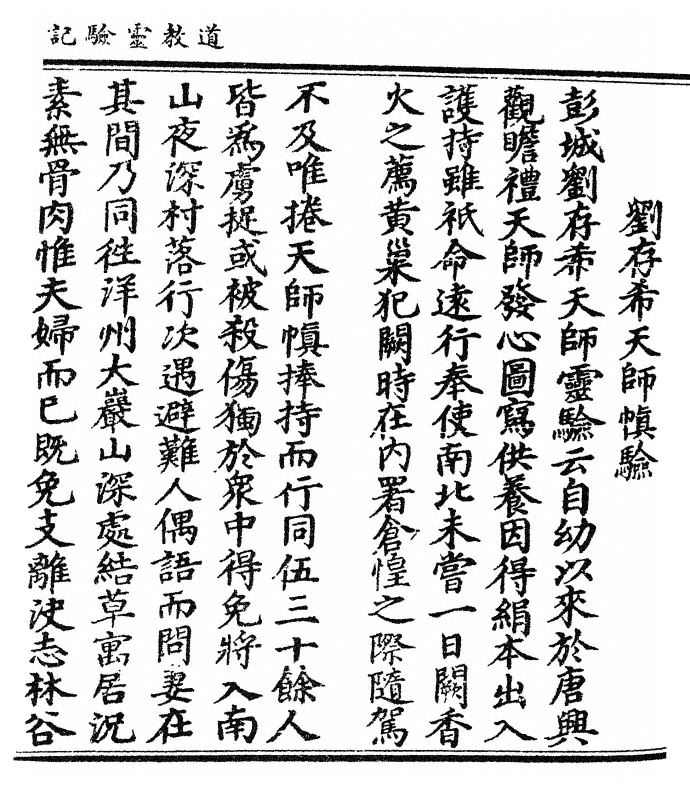 道教靈驗記
劉存希天師幀驗
彭城劉存希天師靈驗云自幼以來於唐興
觀瞻禮天師發心圖寫供養因得絹本出入
護持雖祇命遠行奉使南北未嘗一日闕香
火之薦黃巢犯闕時在內署倉惶之際隨駕
不及唯捲天師幀捧持而行同伍三十餘人
皆爲虜捉或被殺傷獨於衆中得免將入南
山夜深村落行次遇避難人偶語而問妻在
其間乃同徃洋州大巖山深處結草寓居況
素無骨肉惟夫婦而已既免支離決志林谷